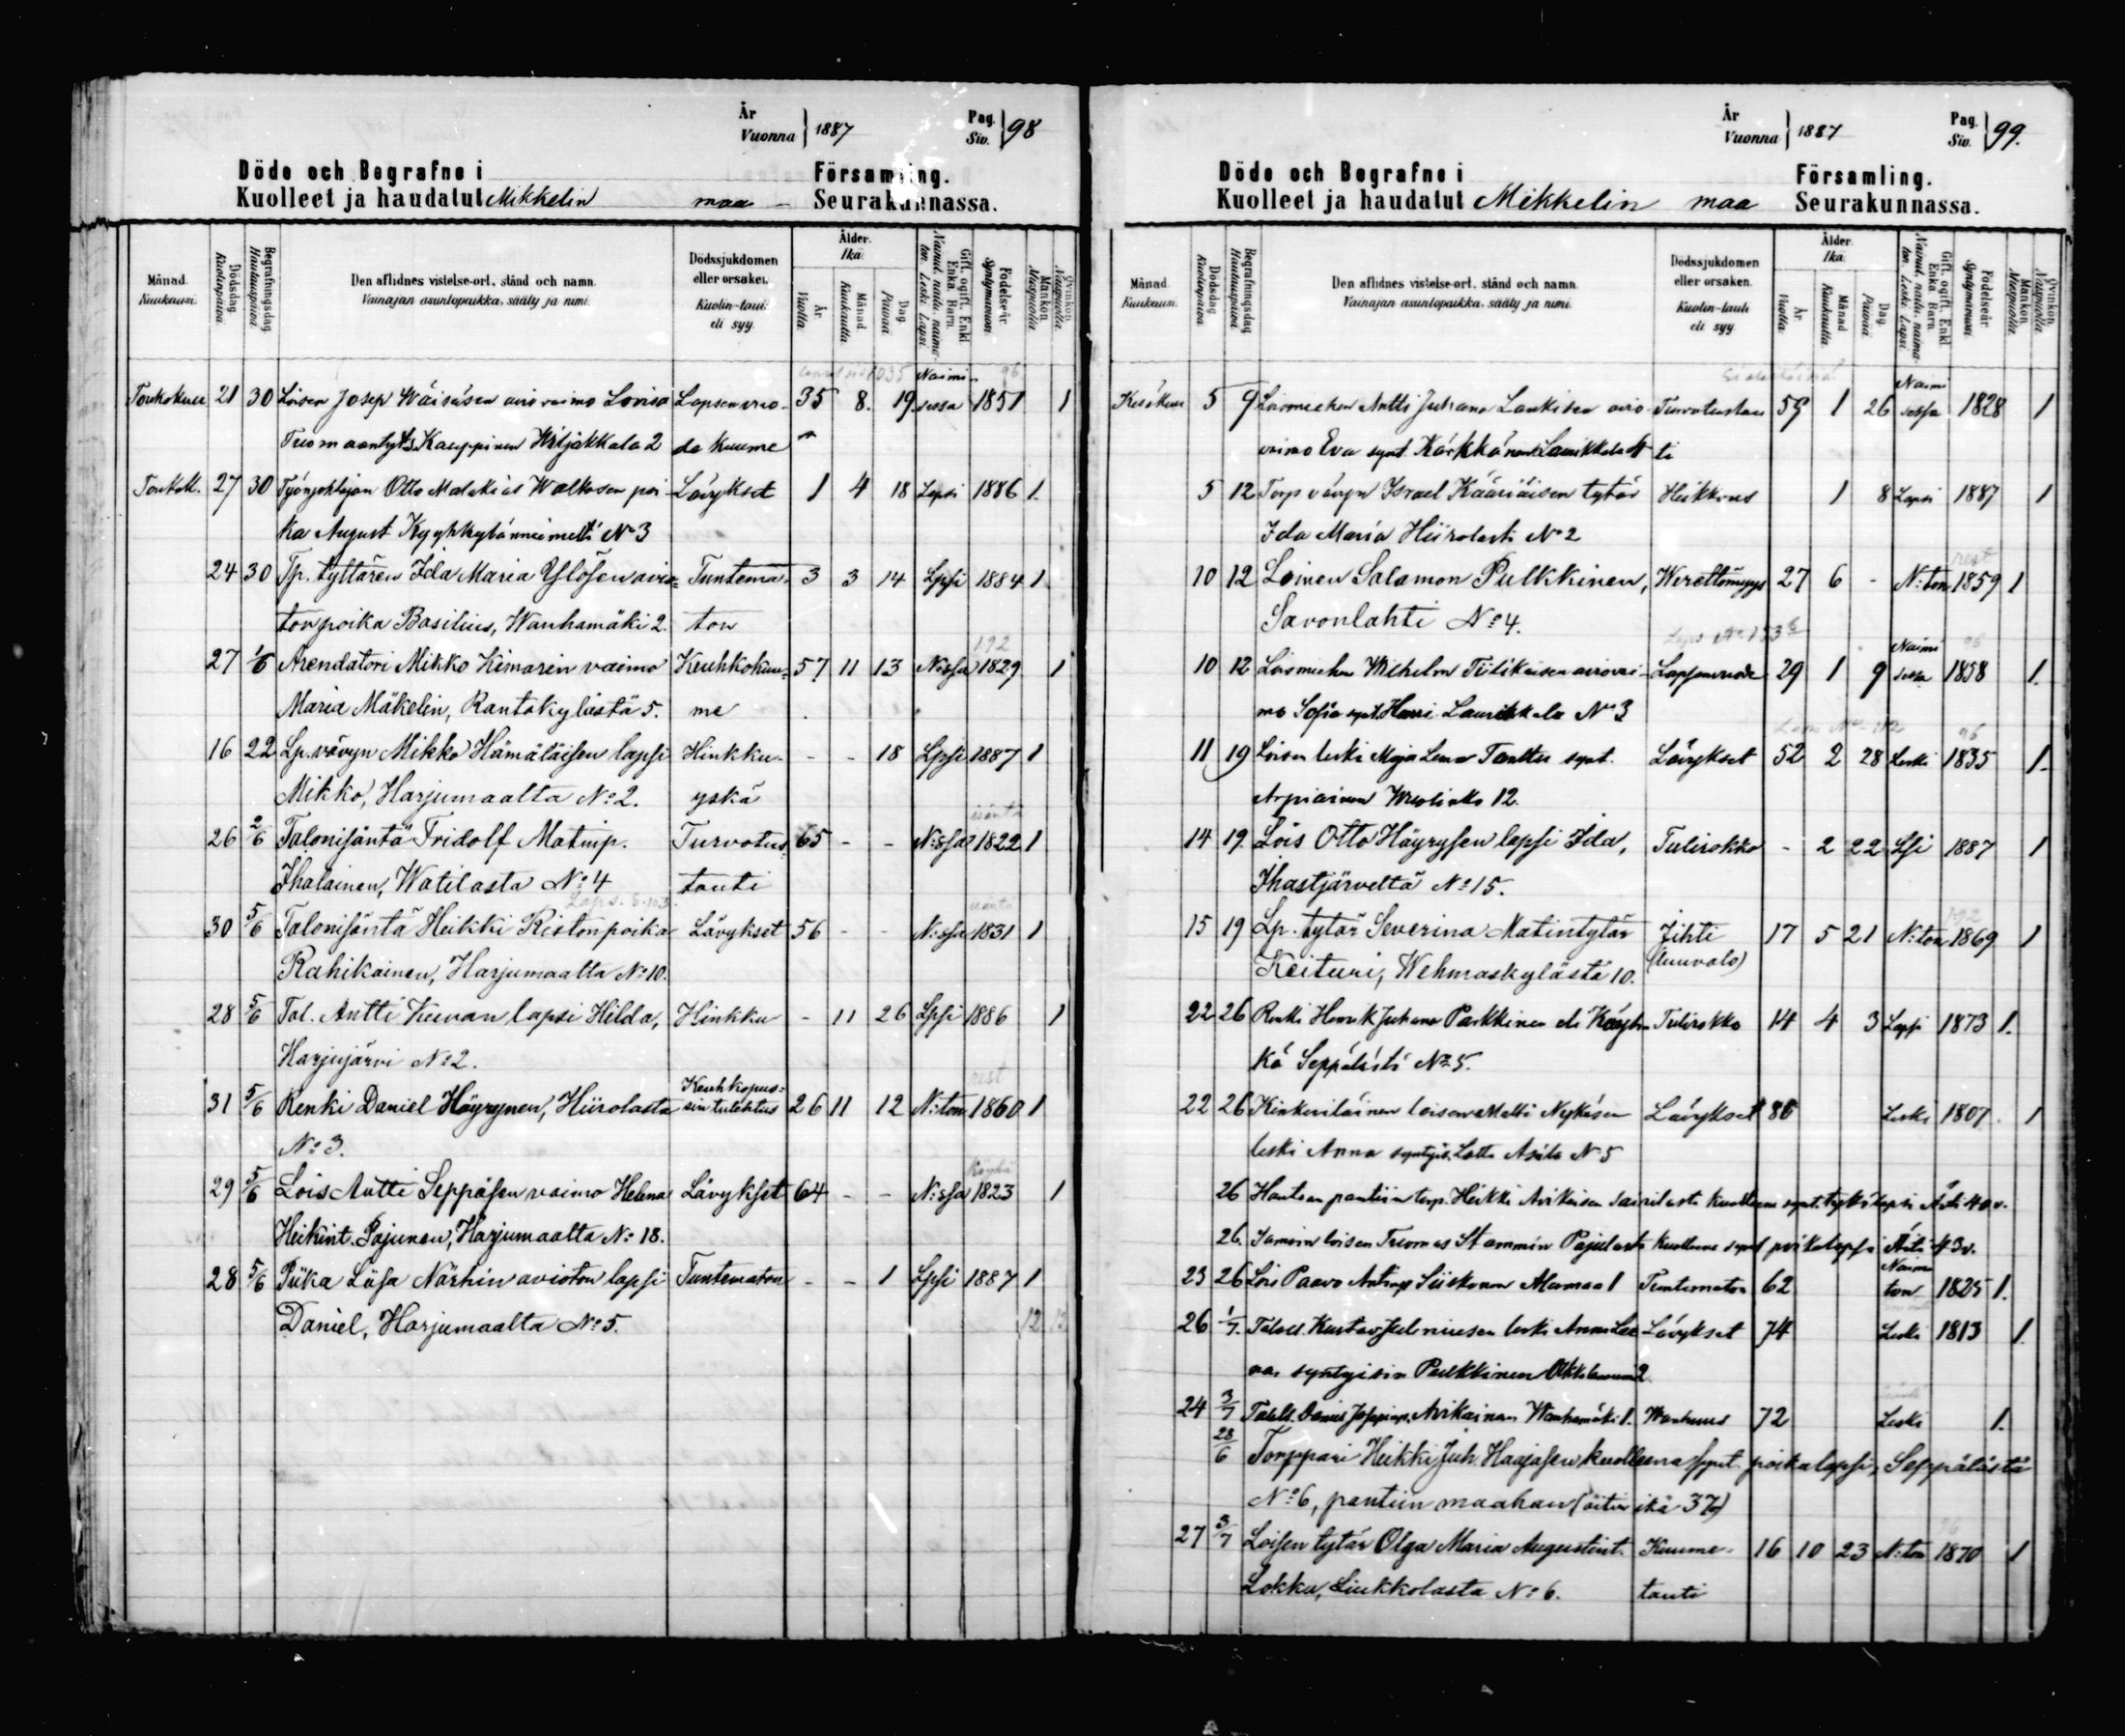 År
Vuonna } 1887
Pag.
Siv. } 98
Döde och Begrafne i Församling.
Kuolleet ja haudatut Mikkelin maa – Seurakunnassa.
Månad. Kuukausi.
Dödsdag. Kuolinpäivä
Begrafningsdag Hautauspäivä
Den aflidnes vistelse-ort, stånd och namn.
Vainajan asuntopaikka, sääty ja nimi.
Dödssjukdomen eller orsaken.
Kuolin-tauti eli syy.
Ålder. Ikä.
År. Vuotta.
Månad. Kuukautta.
Dag. Päivää
Gift, ogift, Enkl. Enka. Barn.
Nainut, naimaton. Leski. Lapsi.
Födelseår. Syntymävuosi.
Mankön. Miespuolia.
Qvinkön. Naispuolia.
Naimi
Toukokuu 21 30 Loisen Josep Wäisäsen aviovaimo Lovisa Lapsenvuo- 35 8. 19. sessa 1851 1
Tuomaantyt. Kauppinen Wiljakkala 2 de kuume
Toukok. 27 30 Työnjohtajan Otto Malakias Walkosen poi- Lävykset 1 4 18 Lapsi 1886 1.
ka August Kyyhkylänniemeltä No 3
24 30 Tp. tyttären Ida Maria Ylösen avio- Tuntema- 3 3 14 Lpsi 1884 1.
ton poika Basilius, Wanhamäki 2. ton
192
27 1/6 Arendatori Mikko Kimarin vaimo Keuhkokuu- 57 11 13 N:ssa 1829 1
Maria Mäkelin, Rantakylästä 5. me
16 22 Lp. vävyn Mikko Hämäläisen lapsi Hinkku- - - 18 Lpsi 1887 1
Mikko, Harjumaalta No 2. yskä
isäntä
26 2/6 Talonisäntä Fridolf Matinp. Turvotus- 65 - - N:ssa 1822 1
Ihalainen, Watilasta No 4 tauti
30 5/6 Talonisäntä Heikki Ristonpoika Lävykset 56 - - N:ssa 1831 1
Rahikainen, Harjumaalta No 10.
28 5/6 Tal. Antti Kuvan lapsi Hilda, Hinkku - 11 26 Lpsi 1886 1
Harjujärvi No 2.
Keuhkopus-
31 5/6 Renki Daniel Häyrynen, Hiirolasta sin tulehtus 26 11 12 N:ton 1860 1
No 3.
29 5/6 Lois Antti Seppäsen vaimo Helena Lävykset 64 - - N:ssa 1823 1
Heikint. Pajunen, Harjumaalta No 18.
28 5/6 Piika Liisa Närhin avioton lapsi Tuntematon - - 1 Lpsi 1887 1
Daniel, Harjumaalta No 5. 12
År
Vuonna } 1887
Pag.
Siv. } 99.
Döde och Begrafne i Församling.
Kuolleet ja haudatut Mikkelin maa Seurakunnassa.
Månad. Kuukausi.
Dödsdag. Kuolinpäivä
Begrafningsdag Hautauspäivä
Den aflidnes vistelse-ort, stånd och namn.
Vainajan asuntopaikka, sääty ja nimi.
Dödssjukdomen eller orsaken.
Kuolin-tauti eli syy
Ålder. Ikä.
År. Vuotta.
Månad. Kuukautta.
Dag. Päivää
Gift, ogift, Enkl. Enka. Barn.
Nainut, naimaton. Leski. Lapsi.
Födelseår. Syntymävuosi.
Mankön. Miespuolia.
Qvinkön. Naispuolia.
Naimi
Kesäkuu 5 9 Loismiehen Antti Juhana Laukisen avio- Turvotustau 59 1 26 sessa 1828 1
vaimo Eva synt. Kärkkäinen Laurikkala 4 ti
5 12 Torp vävyn Israel Kääriäisen tytär Heikkous 1 8 Lapsi 1887 1
Ida Maria Hiirolasti No 2
10 12 Loinen Salamon Pulkkinen, Werettömyys 27 6 - N:ton 1859 1
Savonlahti No 4.
Naimi
10 12 Loismiehen Wilhelm Tiilikaisen aviovai- Lapsenvuode 29 1 9 sessa 1858 1.
mo Sofia synt. Harri Laurikkala No 3
96
11 19 Loisen leski Maja Lena Tanttu synt. Lävykset 52 2 28 Leski 1835 1.
Arpiainen 12.
14 19 Lois Otto Häyrysen lapsi Ida, Tulirokko - 2 22 Lsi 1887 1
Ihastjärveltä No 15.
192
15 19 Lp. tytär Severina Matintytär Jihti 17 5 21 N:ton 1869 1
Keituri, Wehmaskylästä 10. (luuvalo)
22 26 Renki Henrik Juhana Parkkinen eli Käyh- Tulirokko 14 4 3 Lapsi 1873 1.
kä Seppälästä No 5.
22 26 loisen Matti Nykäsen Lävykset 80 Leski 1807. 1
leski Anna No 5
26 Hautaan pantiin torp. Heikki Avikaisen Sairilasta kuolleena synt. tyttölapsi Äiti 40 v.
26. Samoin loisen Tuomas Stammin Pajulasta kuolleena synt poikalapsi Äiti 43 v.
Naima
23 26 Lois Paavo Antinp Siiskonen Alamaa 1 Tuntematon 62 ton 1825 1.
26 1/7. Talell. Kustav Juliniusen leski Anna Lee- Lävykset 74 Leski 1813 1.
na syntyisin Pulkkinen 2
24 3/7 Talell. Avikainen Wanhamäki 1. Wanhuus 72 Leski 1.
28/6 Torppari Heikki Juh. Haajasen kuolleena synt. poikalapsi, Seppälästä
No 6, pantiin maahan (äitin ikä 37v)
27 3/7 Loisen tytär Olga Maria Augustint. Kuume- 16 10 23 N:ton 1870 1
Lokka, Liukkolasta No 6. tauti